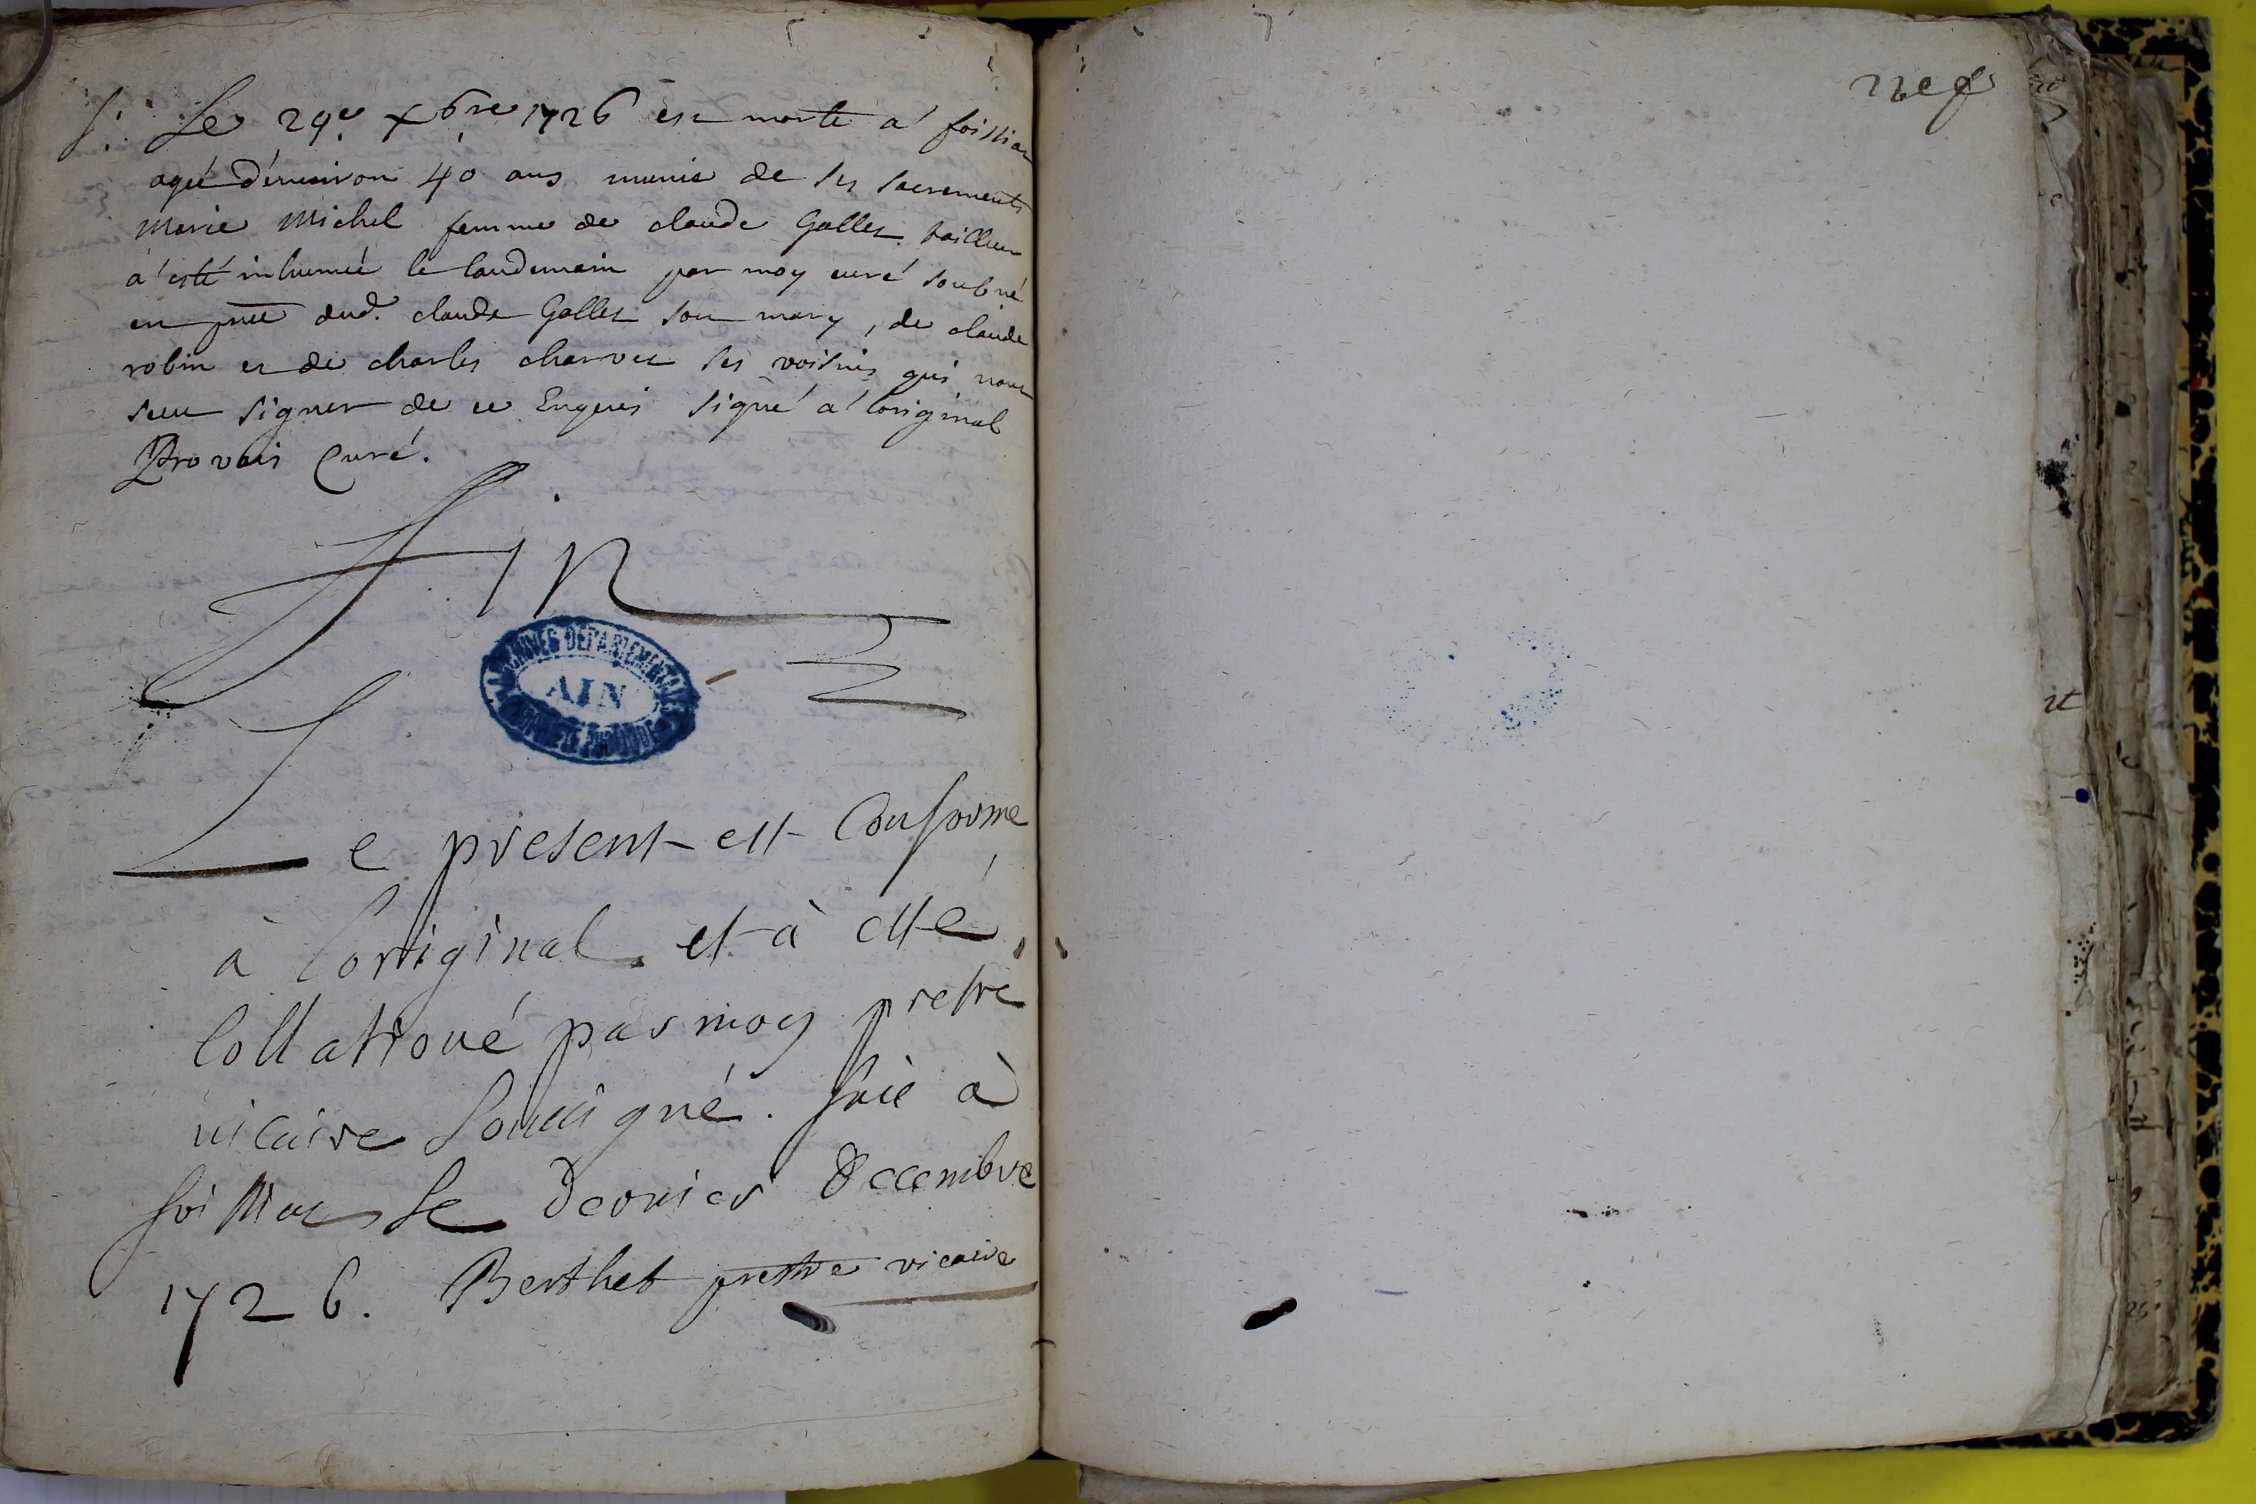 S. Le 29e xbre 1726 est morte a foissiat
agée d'environ 40 ans munie de ses sacrements
Marie Michel femme de claude Gallet tailleur
a esté inhumée le landemain par moy curé soubné
en pnce dud. claude Gallet son mary, de claude
robin et de charles charvet ses voisins qui nont
sceu signer de ce Enquis signé a l'original
Provais Curé.
Fin
ARCHIVES DEPARTEMENTALES
AIN
Le present est Conforme
à l'original et à esté
Collationé par moy prestre
vicaire Soussigné. fait à
foissiat le dernier decembre
1726. Berthet prestre vicaire